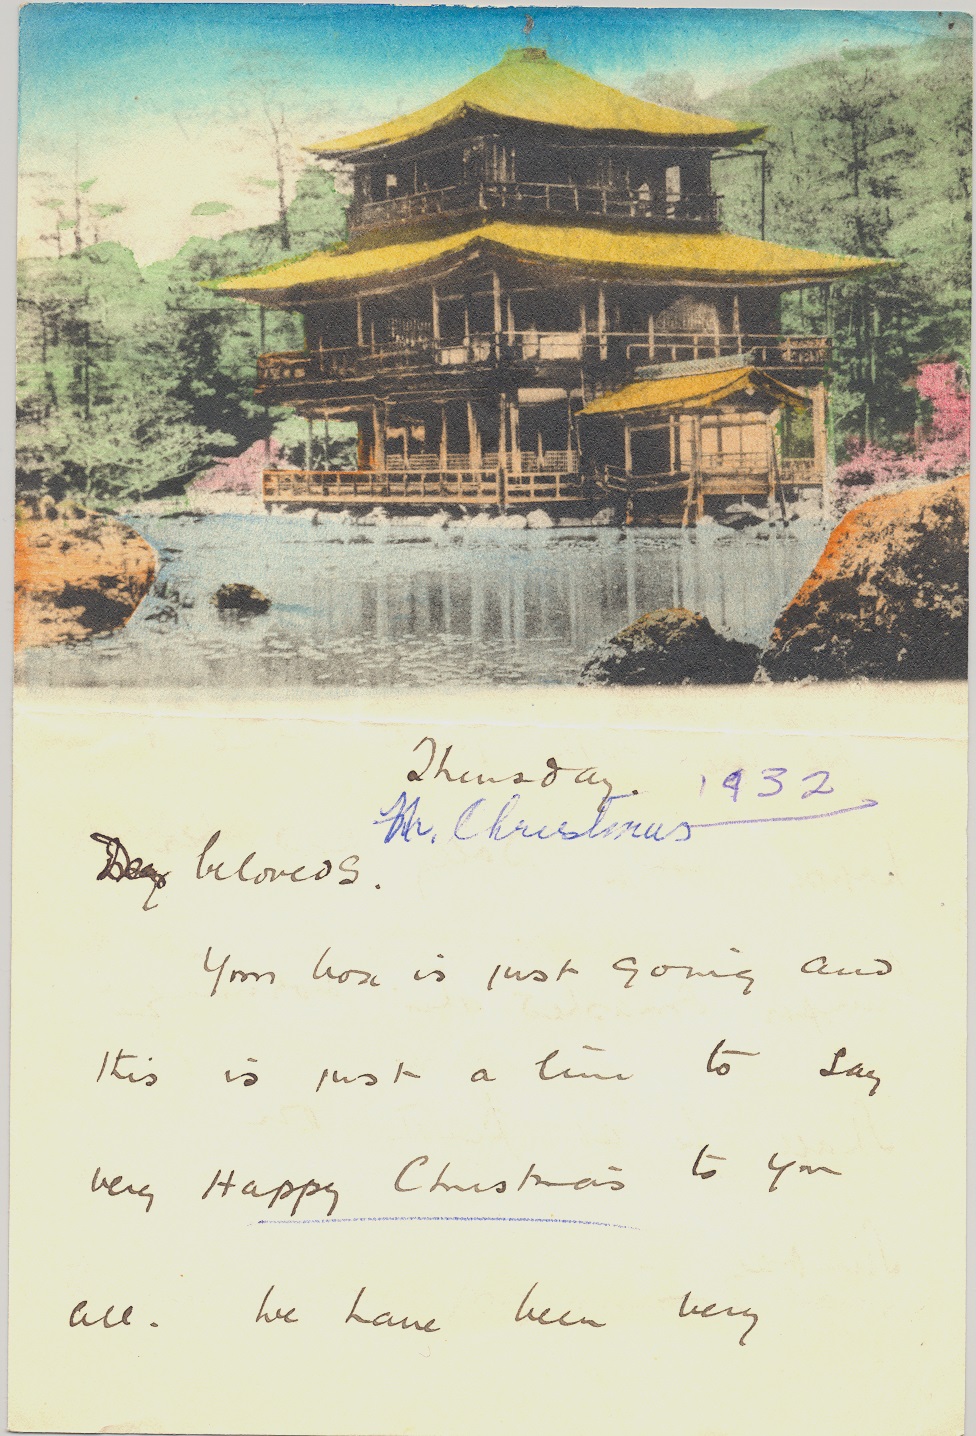 Thursday. 1932
Nr. Christmas
Dear beloveds.
Your box is just going and
this is just a line to say
very Happy Christmas to you
all. We have been very